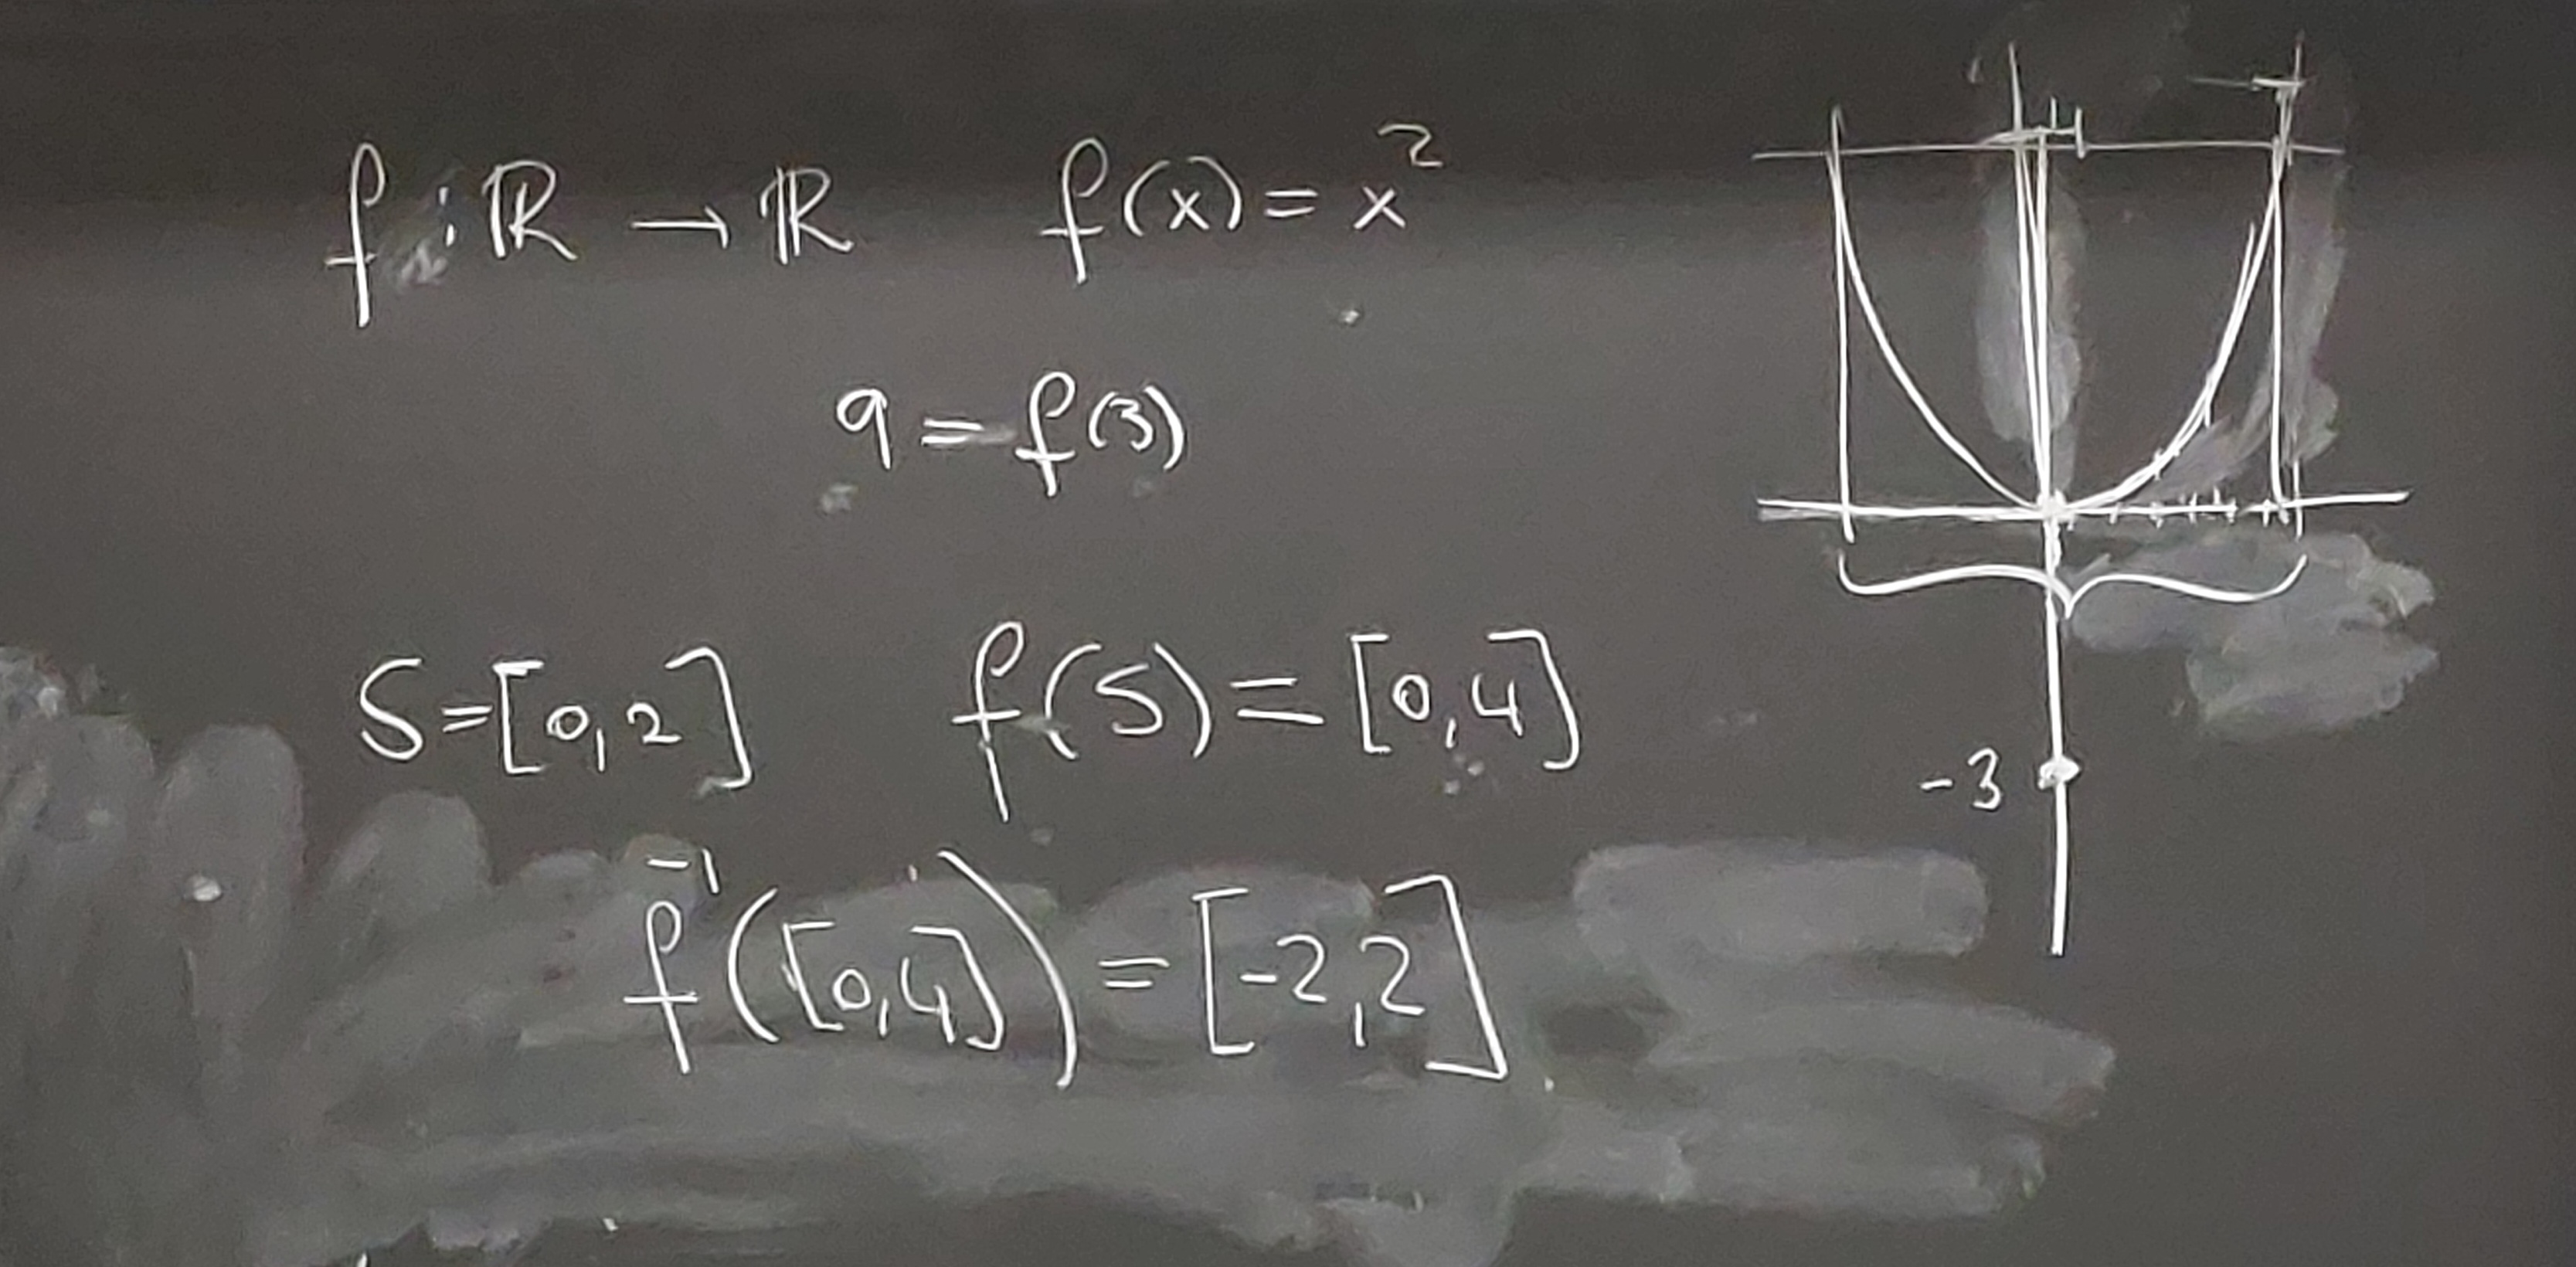 f : ℝ → ℝ f(x) = x²
9 = f(3)
S = [0,2] f(S) = [0,4]
f⁻¹([0,4]) = [-2,2]
-3